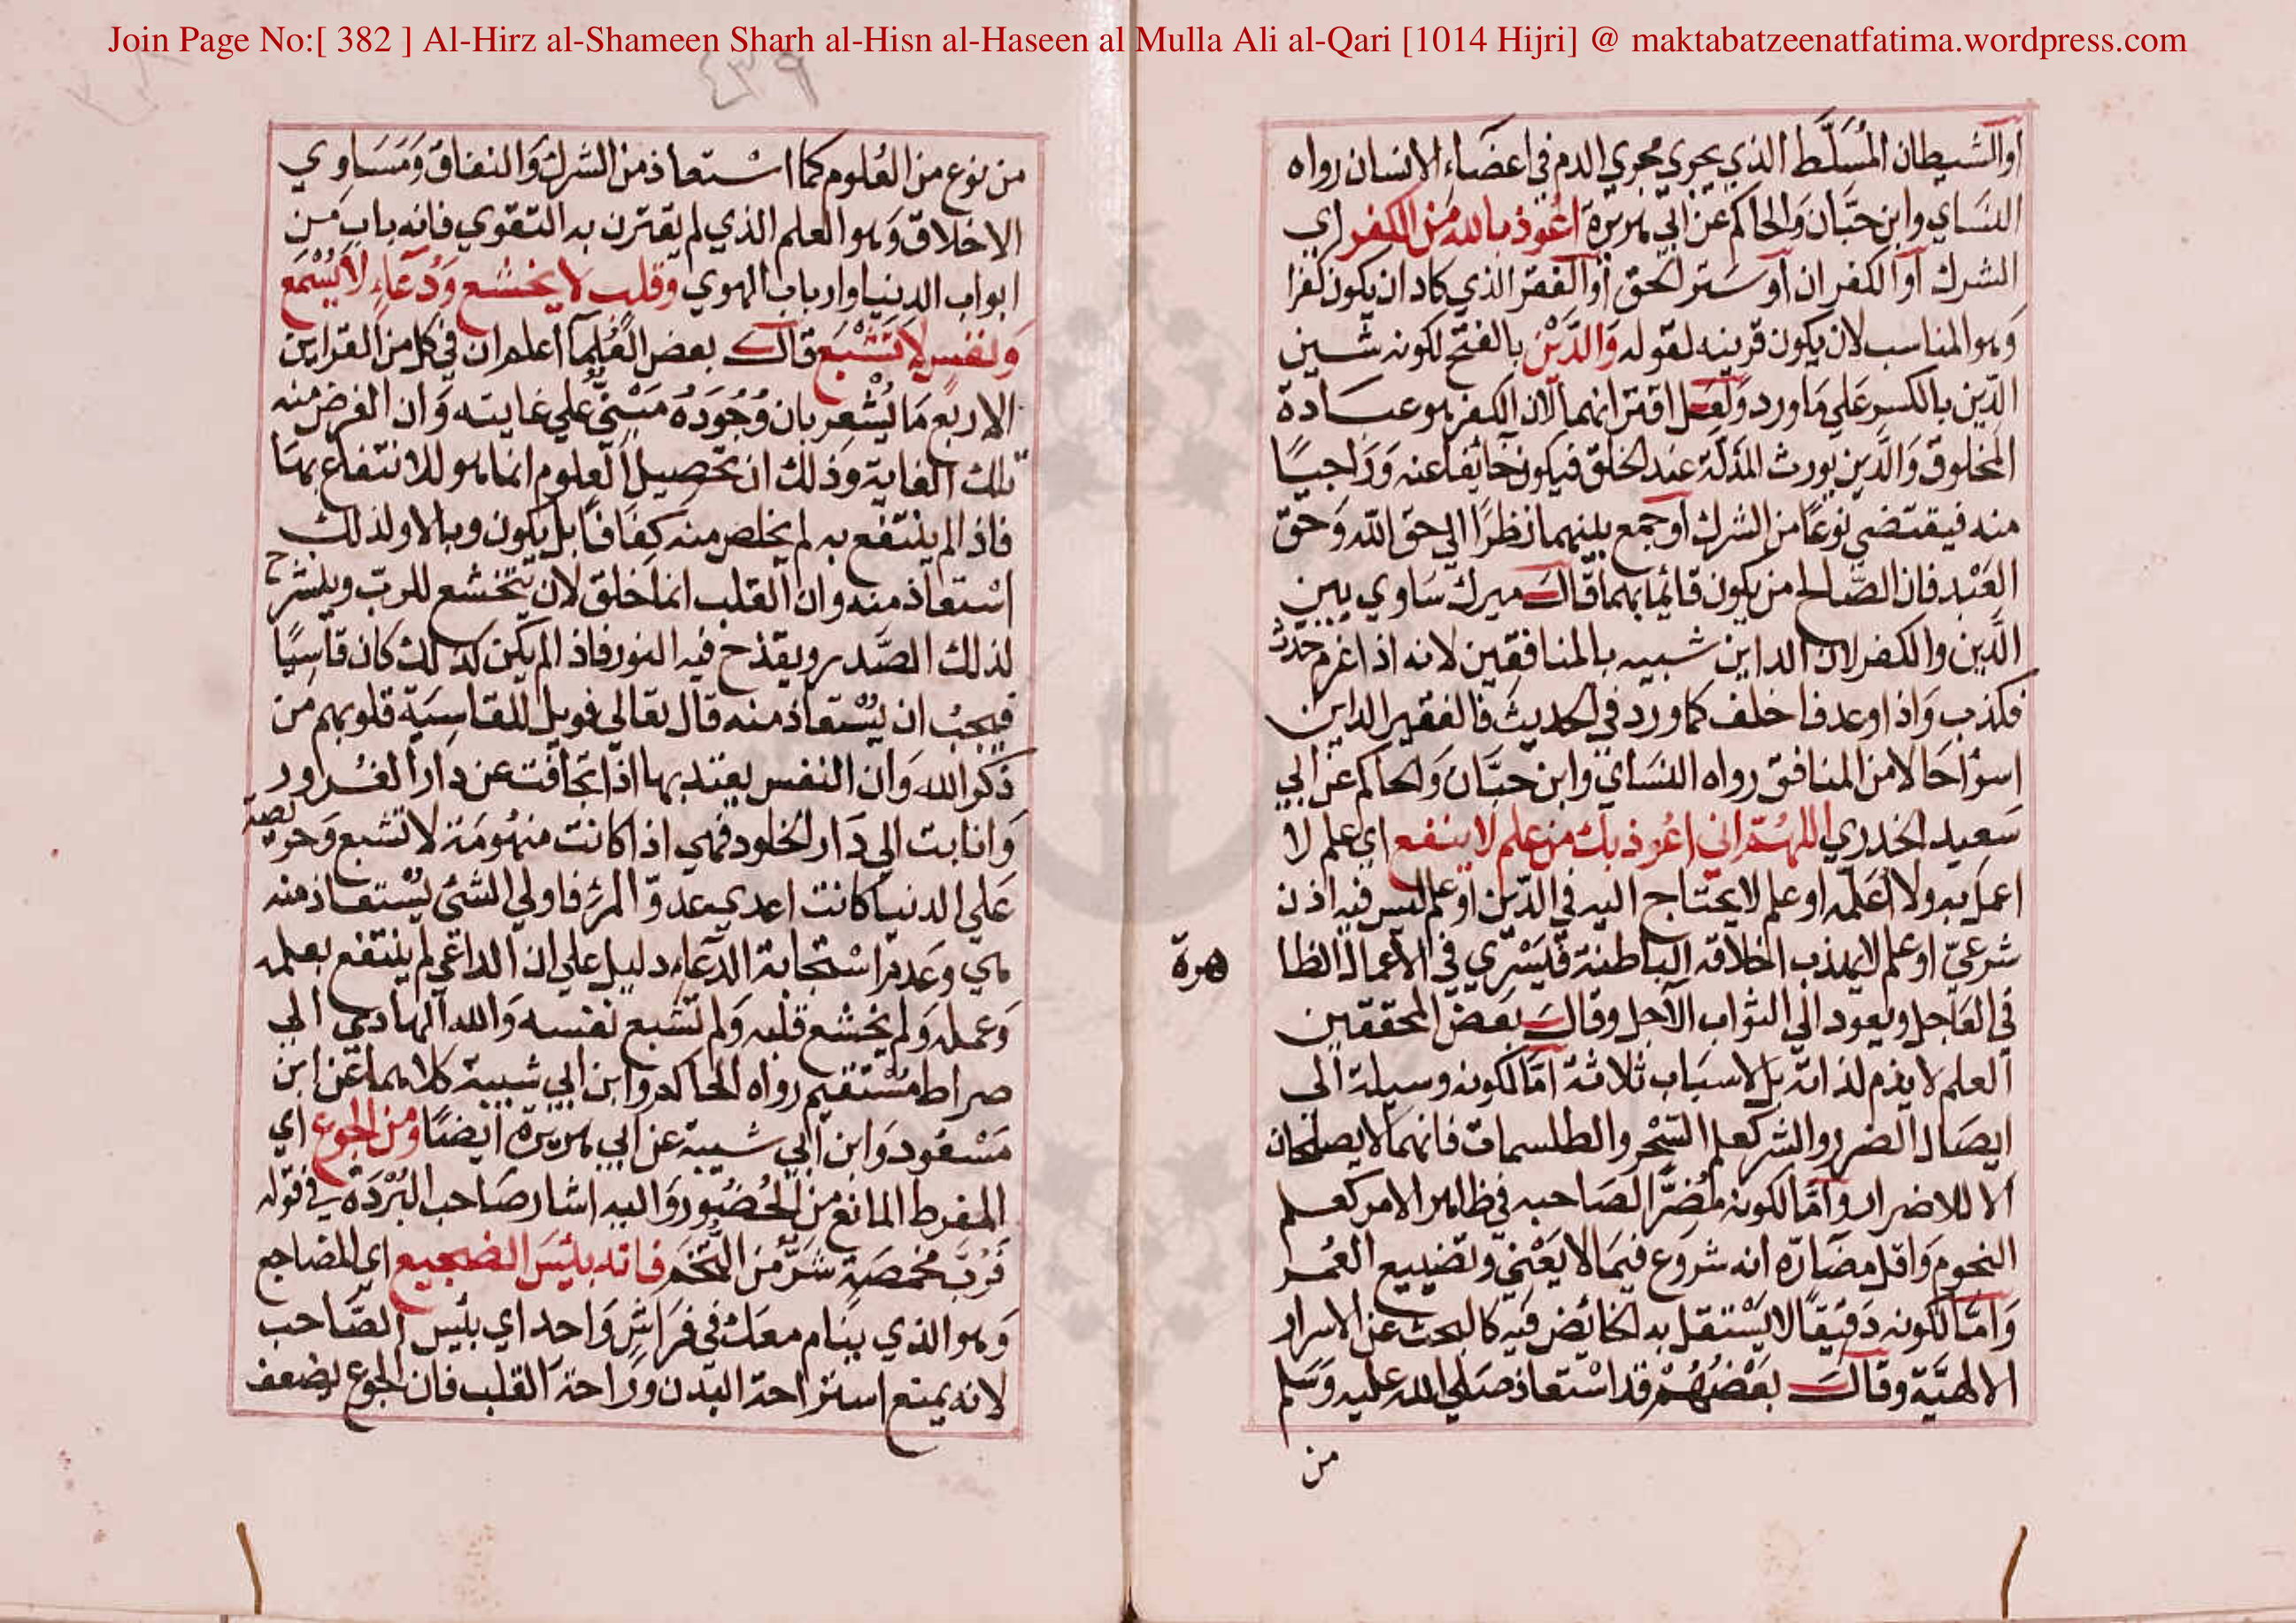 Join Page No:[ 382 ] Al-Hirz al-Shameen Sharh al-Hisn al-Haseen al Mulla Ali al-Qari [1014 Hijri] @ maktabatzeenatfatima.wordpress.com
اوالشيطان المُسَلَّط الذي يجري مجري الدم في اعضَاءِ الانسان رواه
النسَاي وابن حبَّان وَالحاكم عن ابي هريرة اعُوذ بالله مَن الكفر اي
الشرك آو الكفران آو سَتر الحق آو الفقر الذي كاد ان يكون كفرا
وَهو المناسب لان يكون قرينه لقوله وَالدَّيْن بالفتح لكونه شين
الدّين بالكسر علي مَا ورد وَلعَل اقترانهما لان الكفر هو عبَادة
المخلوق وَالدَّين يورث المذلّة عند الخلق فيكون خائفا عنه وَرَاجيًا
منه فيقتضي نوعًا من الشرك اوجمع بينهما نظرًا الي حق الله وَحق
العَبْد فان الصَّالح من يكون قائما بهما قالَ ميرك سَاوي بين
الدَّين والكفر لان الداين شبيه بالمنافقين لانه اذا غرم حَدث
فكذب وَاذا وعد فاخلف كما ورد في الحديث فالفقير الداين
اسوأ حَالا من المنافق رواه النسَاي وابن حبَّان وَالحاكم عن ابي
سَعيد الخدري اللهُمّ اني اعُوذ بك من علم لا ينفع اي علم لا
اعمل به ولا اُعَلّمه او علم لا يحتاج اليه في الدّين او علم ليس فيه اذن
شرعيّ او علم لا يهذب اخلاقه الباطنة فيَسْري في الاعمال الظا
هرة
في العَاجل ويعود الي الثواب الآجل وقالَ بعَض المحققين
العلم لا يذم لذاته بل لاسبَاب ثلاثة امّا لكونه وسيلة الي
ايصَال الضرر والشر كعلم السّحْر والطلسمات فانهما لا يصلحان
الا للاضرار وامَّا لكونه مُضرًّا لصَاحبه في ظاهر الامر كعلم
النجوم وَاقل مضَارّه انه شروع فيمَا لا يَعْني وتضييع العُمر
وَامَّا لكونه دَقيقًا لا يَسْتقل به الخائض فيه كالبحث عن الاسرار
الالهيَّة وقالَ بعَضهُمْ قد اسْتعاذ صَلي الله عليه وَسَلم
من
من نوع من العُلوم كما اسْتعاذ من الشرك وَالنفاق وَمسَاوي
الاخلاق وَهو العلم الذي لم يقترن به التقوي فانه باب من
ابواب الدنيا وارباب الهوي وقلب لا يخشع وَدُعَاءٍ لا يُسْمَع
وَنفسٍ لا تَشْبَع قال بعض العُلماء اعلم ان في كل من القراين
الاربع مَا يُشْعر بان وُجُودَهُ مَبْنيّ علي غايته وَان الغرض منه
تلك الغاية وَذلك ان تحصيل العلوم انما هو للانتفاع بهَا
فاذا لم ينتفع به لم يخلص منه كفافًا بل يكون وبالا ولذلك
اسْتعاذ منه وان القلب انما خلق لان يتخشع للربّ وينشرح
لذلك الصَّدر ويقذح فيه النور فاذا لم يكن كذلك كان قاسِيًا
فيجبُ ان يُسْتعاذ منه قال تعالي فويل للقاسِيَة قلوبهم من
ذكر الله وَان النفس يعتد بها اذا تجافت عن دار الغُرور
وَانابت الي دَار الخلود فهي اذا كانت منهُومَة لا تشبع وَحريصة
عَلي الدنيا كانت اعدي عدوّ المرْء فاولي الشئ يُسْتعاذ منه
هي وَعدم اسْتجابة الدعَاء دليل علي ان الداعي لم ينتفع بعلمه
وَعمله وَلم يخشع قلبه وَلم تشبع نفسه وَالله الهادي الي
صراط مُسْتقيم رواه الحاكم وابن ابي شيبة كلاهما عَن ابن
مَسْعُود وَابن ابي شيبة عن ابي هريرة ايضًا ومن الجوع اي
المفرط المانع من الحُضُور وَاليه اشار صَاحب البُرْدَة في قوله
فَرُبَّ مَخمصَةٍ شَرٌّ منَ التُّخَم فانه بئسَ الضجيع اي المضاجع
وَهو الذي ينَام معك في فرَاشٍ وَاحد اي بئيس الصَّاحب
لانه يمنع استراحة البَدن وَرَاحة القلب فان الجوع يضعف